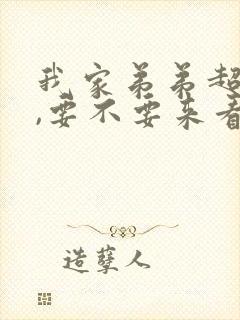 我家弟弟超
,要不要来看
造孽人